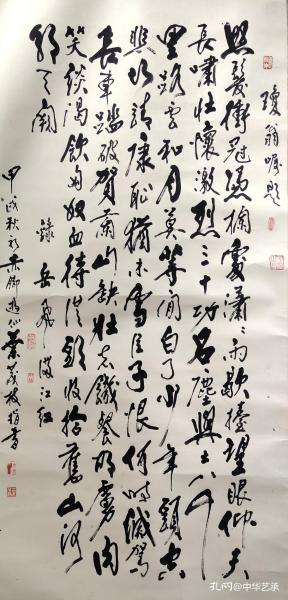 瓊翁嘱題
怒髮衝冠憑欄處瀟瀟雨歇擡望眼仰天
長嘯壯懷激烈三十功名塵與土八千
里路雲和月莫等閒白了少年頭空
悲切靖康恥猶未雪臣子恨何時滅駕
長車踏破賀蘭山缺壯志饑餐胡虜肉
笑談渴飲匈奴血待從頭收拾舊山河
朝天闕
錄岳飛滿江紅
甲戌秋初赤脚遊仙葉茂枝指書
孔网@中华艺承